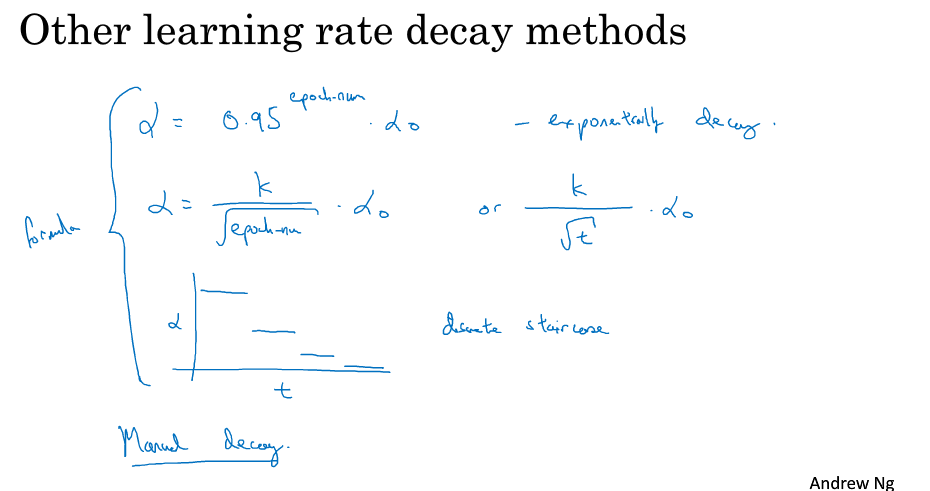 Other learning rate decay methods
α = 0.95^epoch-num · α₀ – exponentially decay.
α = k / √epoch-num · α₀ or k / √t · α₀
formula
α
discrete staircase
t
Manual decay.
Andrew Ng